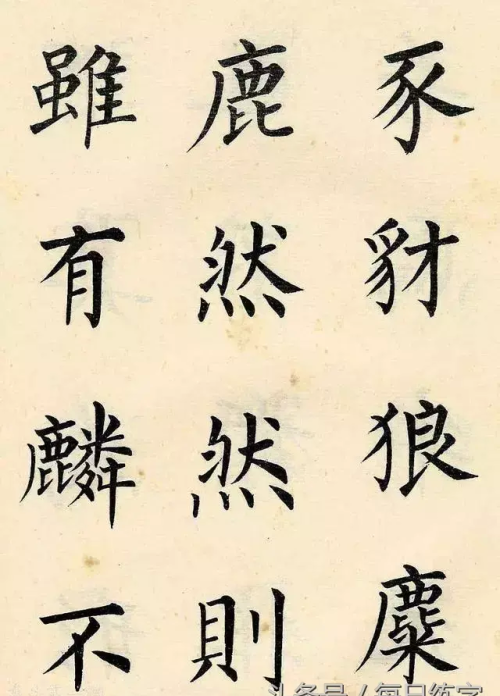 豕豺狼麋
鹿然然則
雖有麟不
头条号／每日练字